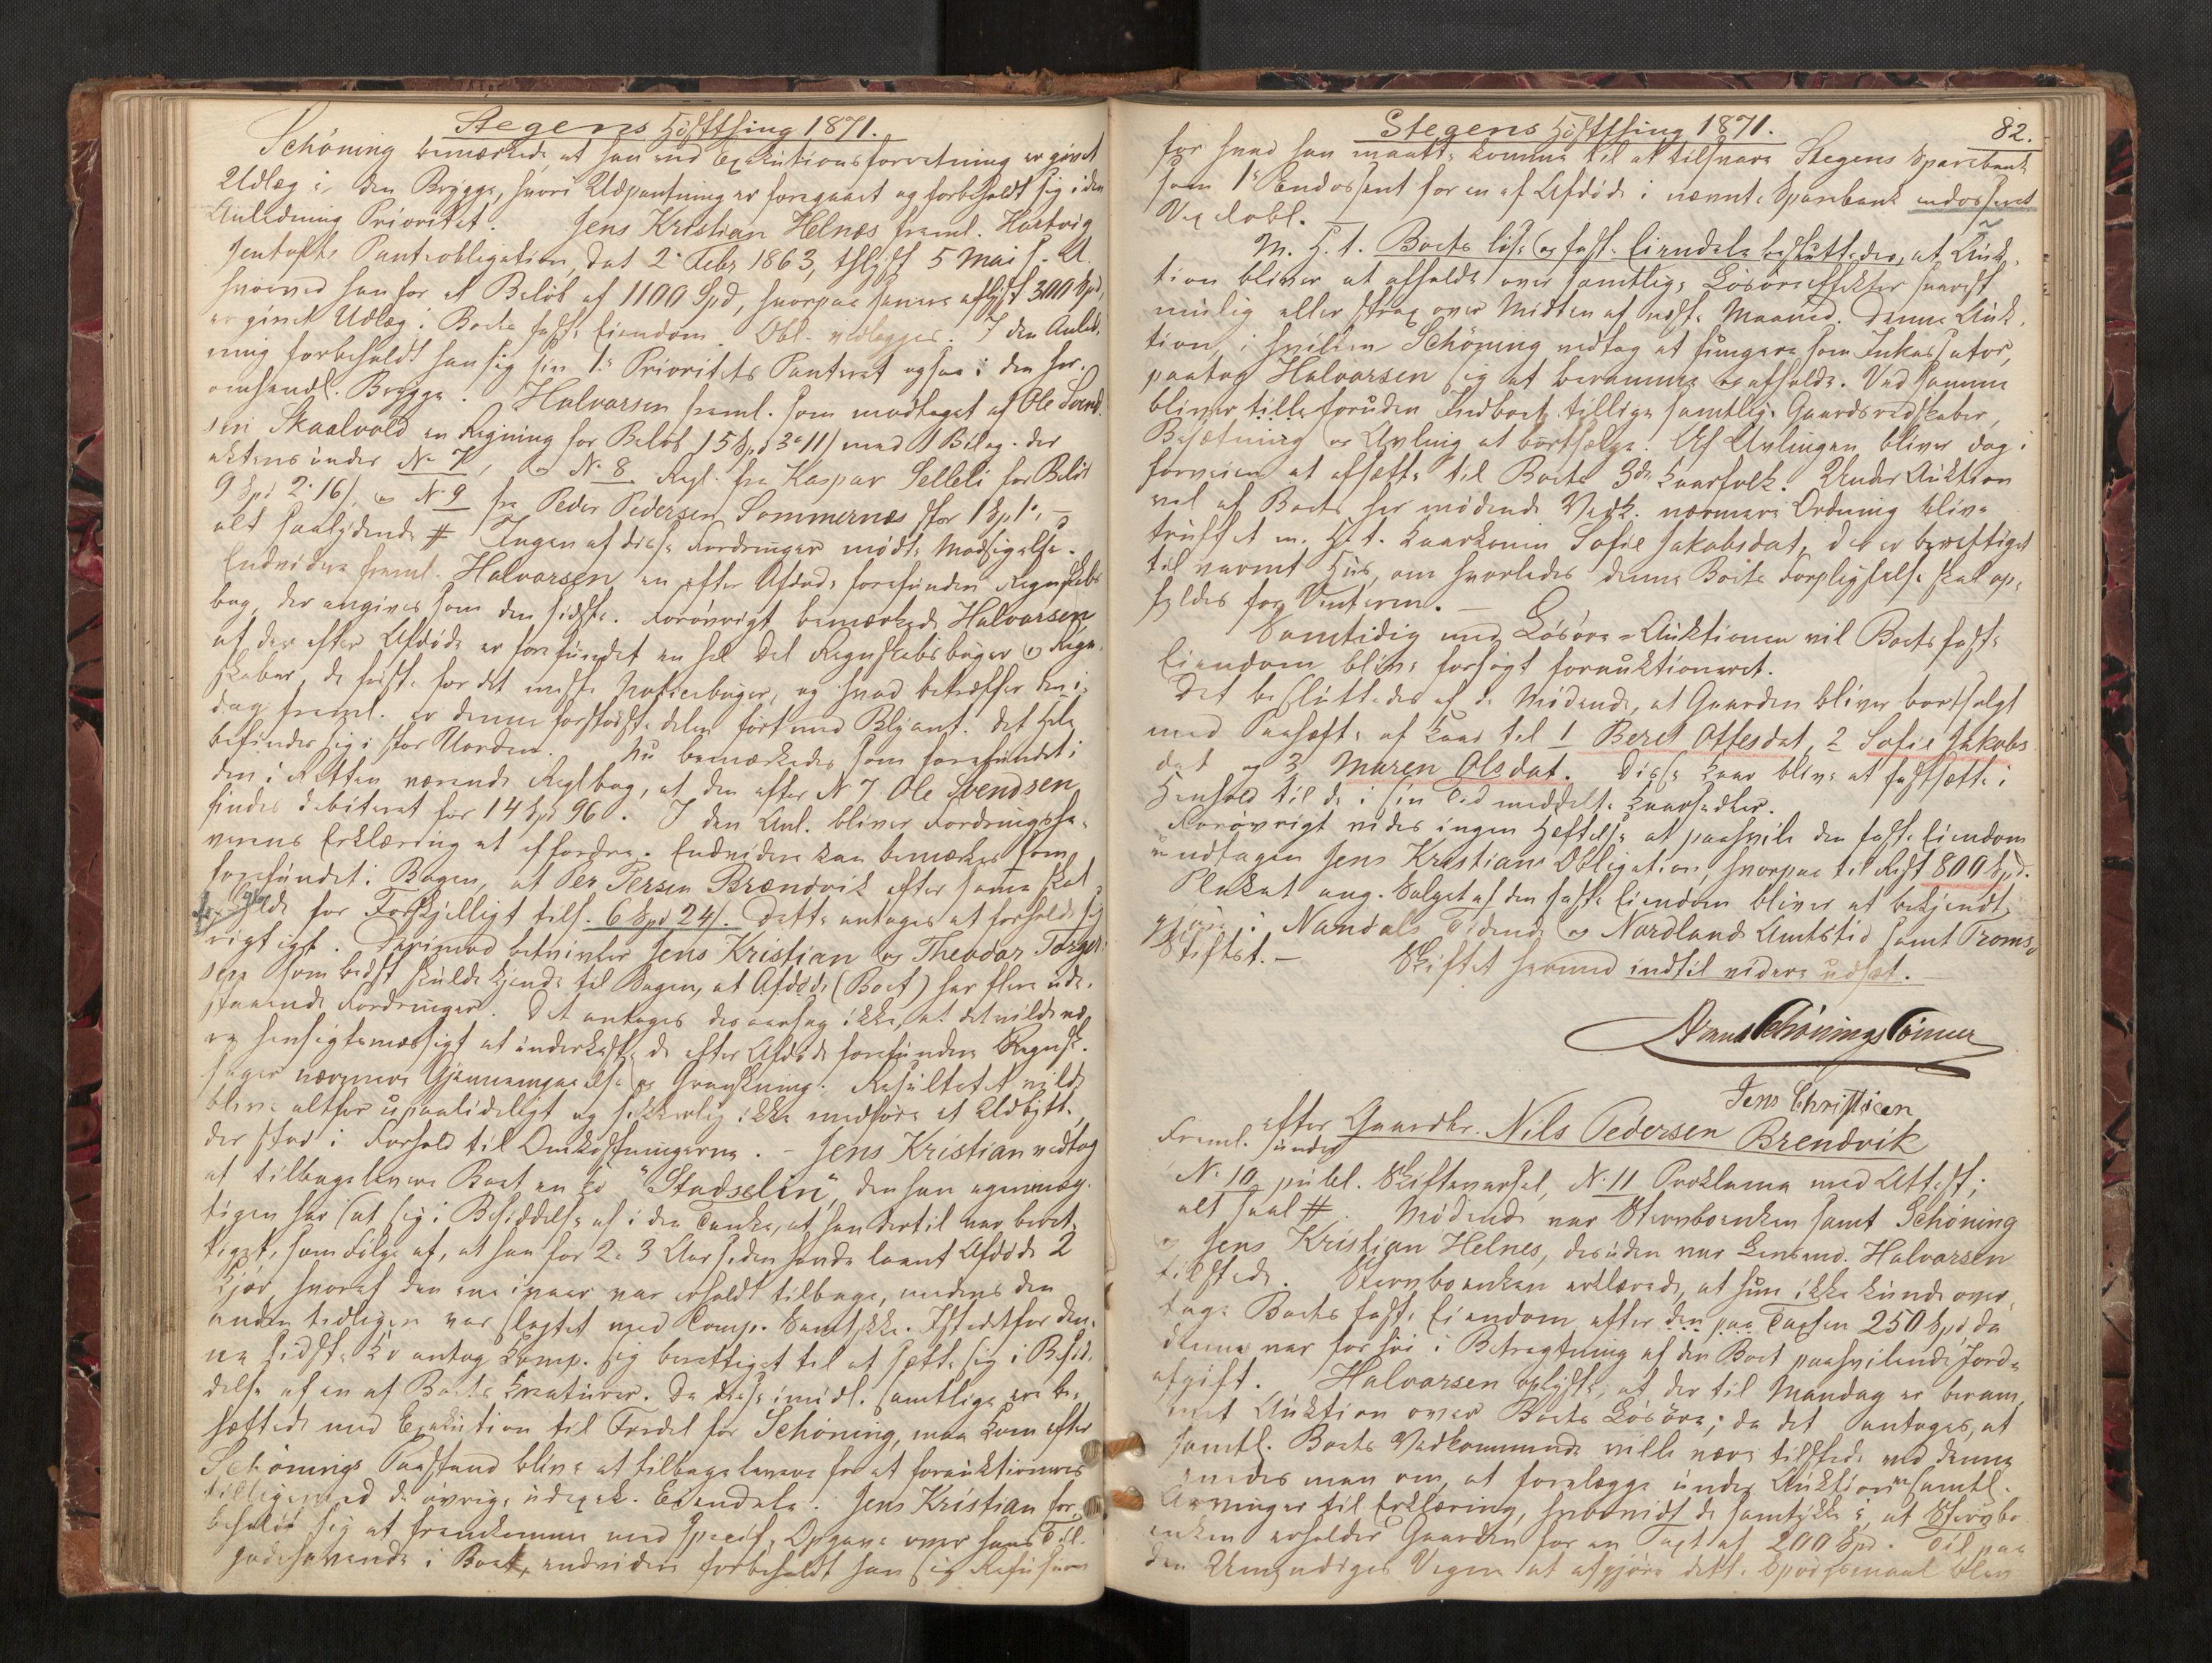 Stegens Høstthing 1871.
Schöning bemærkede, at han ved Exekutionsforretning er givet
Udlæg i den Brygge, hvori Udpantning er foregaaet og forbeholdt sig i den
Anledning Prioritet. Jens Kristian Helnæs freml. Hartvig
Jentofts Panteobligation, dat 2 Febr 1863, thlyst 5 Mai s. A.
hvorved han for et Beløb af 1100 Spd, hvorpaa senere aflyst 300 Spd,
er givet Udlæg i Boets faste Eiendom. Obl. vedlægges. I den Anled-
ning forbeholdt han sig sin 1ste Prioritets Panteret ogsaa i den her-
omhandl. Brygge. Halvorsen freml. som modtaget af Ole Svend-
sen Skaalvold en Regning for Beløb 15 Spd 3 11 s med 1 Bilag. der
aktens under No 7, og No 8 Regl. fra Kaspar Selleli for Beløb
9 Spd 2 16 s, og No 9 fra Peder Pedersen Sommernæs stor 1 Sp 1, -
alt saalydende # Ingen af disse Fordringer mødte Modsigelse.
Endvidere freml. Halvorsen en efter Afdøde forefunden Regnskabs
bog, der angives som den sidste. Forøvrigt bemærkede Halvorsen
at der efter Afdøde er forefundet en hel Del Regnskabsbøger og Regn-
skaber, de fleste for det meste Noticebøger, og hvad betræffer den i-
dag freml. er denne for største delen ført med Blyant. Det hele
befinder sig i stor Uorden. Nu bemærkedes som forefundet i
den i Retten værende Reglbog, at den efter N 7 Ole Svendsen
findes debiteret for 14 Spd 96 s. I den Anl. bliver Fordringsha-
verens Erklæring at affordre. Endvidere kan bemærkes som
forefundet i Bogen, at Per Persen Brændvik efter samme skal
skylde for Forskjelligt tils. 6 Spd 24 s. Dette antages at forholde sig
rigtigt. Derimod betvivler Jens Kristian og Theodor Torger-
sen som bedst skulde kjende til Sagen, at Afdøde (Boet) har flere ude-
staaende Fordringer. Det antages desaarsag ikke, at det vilde væ-
re hensigtsmæssigt at underkaste de efter Afdøde forefundne Regnsk.
sager nærmere Gjennemgaaelse og Granskning. Resultatet vilde
blive altfor upaalideligt og sikkerlig ikke medføre et Udbytte
der stod i Forhold til Omkostningerne. - Jens Kristian vedtog
at tilbagelevere Boet en Ko "Stadselin", den han egenmæg-
tigen har sat sig i Besiddelse af i den Tanke, at han dertil var beret-
tiget, som Følge af, at han for 2 a 3 Aar siden havde laant Afdøde 2
Kjør, hvoraf den ene ivaar var erholdt tilbage, medens den
anden tidligere var slagtet med Comp. Samtykke. Istedetfor den-
ne sidste Ko antog Komp. sig berettiget til at sætte sig i Besid-
delse af en af Boets Kreaturer. Da disse imidl. samtlige ere be-
hæftede med Exekution til Fordel for Schöning, maa Koen efter
Schönings Paastand blive at tilbagelevere for at forauktioneres
tilligemed de øvrige udpæk. Eiendele. Jens Kristian for-
beholdt sig at fremkomme med specif. Opgave over hans Til-
godehavende i Boet, endvidere forbeholdt han sig Refusion
Stegens Høstthing 1871.
82.
for hvad han maatte komme til at tilsvare Stegens Sparebank
som 1ste Endossent for en af Afdøde i nævnte Sparebank endosseret
Vexelobl.
M. H. t. Boets løse og faste Eiendele besluttedes, at Auk-
tion bliver at afholde over samtlige Løsøreeffekter snarest
mulig eller strax over Midten af næste Maaned. Denne Auk-
tion, i hvilken Schöning vedtog at fungere som Inkassator,
paatog Halvorsen sig at beramme og afholde. Ved samme
bliver tilleforuden Indboet tillige samtlige Gaardsredskaber,
Besætning og Avling at bortsælge. Af Avlingen bliver dog i
forveien at afsætte til Boets 3de Kaarfolk. Under Auktion
vil af Boets her mødende Vedk. nærmere Ordning blive
truffet m. H. t. Kaarkonen Sofie Jakobsdat, der er berettiget
til varmt Hus, om hvorledes denne Boets Forpligtelse skal op-
fyldes for Vinteren. -
Samtidig med Løsøre-Auktionen vil Boets faste
Eiendom blive forsøgt forauktioneret.
Det besluttedes af de Mødende, at Gaarden bliver bortsolgt
med Paahæfte af Kaar til 1 Beret Ottesdat, 2 Sofie Jakobs
dat og 3 Maren Olsdat. Disse Kaar blive at fastsætte i
Henhold til de i sin Tid meddelte Kaarsedler.
Forøvrigt vides ingen Heftelse at paahvile den faste Eiendom
undtagen Jens Kristians Obligation, hvorpaa til Rest 800 Spd.
Plakat ang. Salget af den faste Eiendom bliver at bekjendt-
gjøre i Namdals Tidende og Nordlands Amtstid samt Tromsø
Stiftst. - Skiftet herved indtil videre udsat.
Schönings
Jens Christian
efter Gaardbr. Nils Pedersen Brendvik
Freml. under
N. 10 publ. Skiftevarsel, N. 11 Proklama med Attest;
alt saal #. Mødende var Stervboenken samt Schöning
og Jens Kristian Helnes, desuden var Lensmd. Halvorsen
tilstede. Stervboenken erklærede, at hun ikke kunde over-
tage Boets faste Eiendom efter den paa Taxten 250 Spd da
denne var for høi i Betragtning af den Boet paahvilende Jord-
afgift. Halvorsen oplyste, at der til Mandag er beram-
met Auktion over Boets Løsøre; da det antages, at
samtl. Boets Vedkommende ville være tilstede ved denne
enedes man om, at forelægge under Auktionen samtl.
Arvinger til Erklæring, hvorvidt de samtykke i, at Stervbo
enken erholder Gaarden for en Taxt af 200 Spd. Til paa
den Umyndiges Vegne at afgjøre dette Spørgsmaal blev